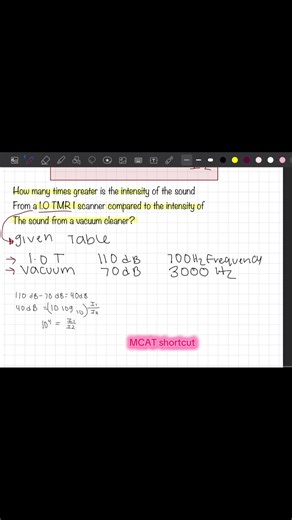 How many times greater is the intensity of the sound
From a 1.0 TMRI scanner compared to the intensity of
The sound from a vacuum cleaner?
given Table
→ 1.0 T 110 dB 700Hz Frequency
→ Vacuum 70dB 3000 Hz
110 dB - 70 dB = 40dB
40dB = (10 log 10) I1/I2
10^4 = I1/I2
MCAT shortcut